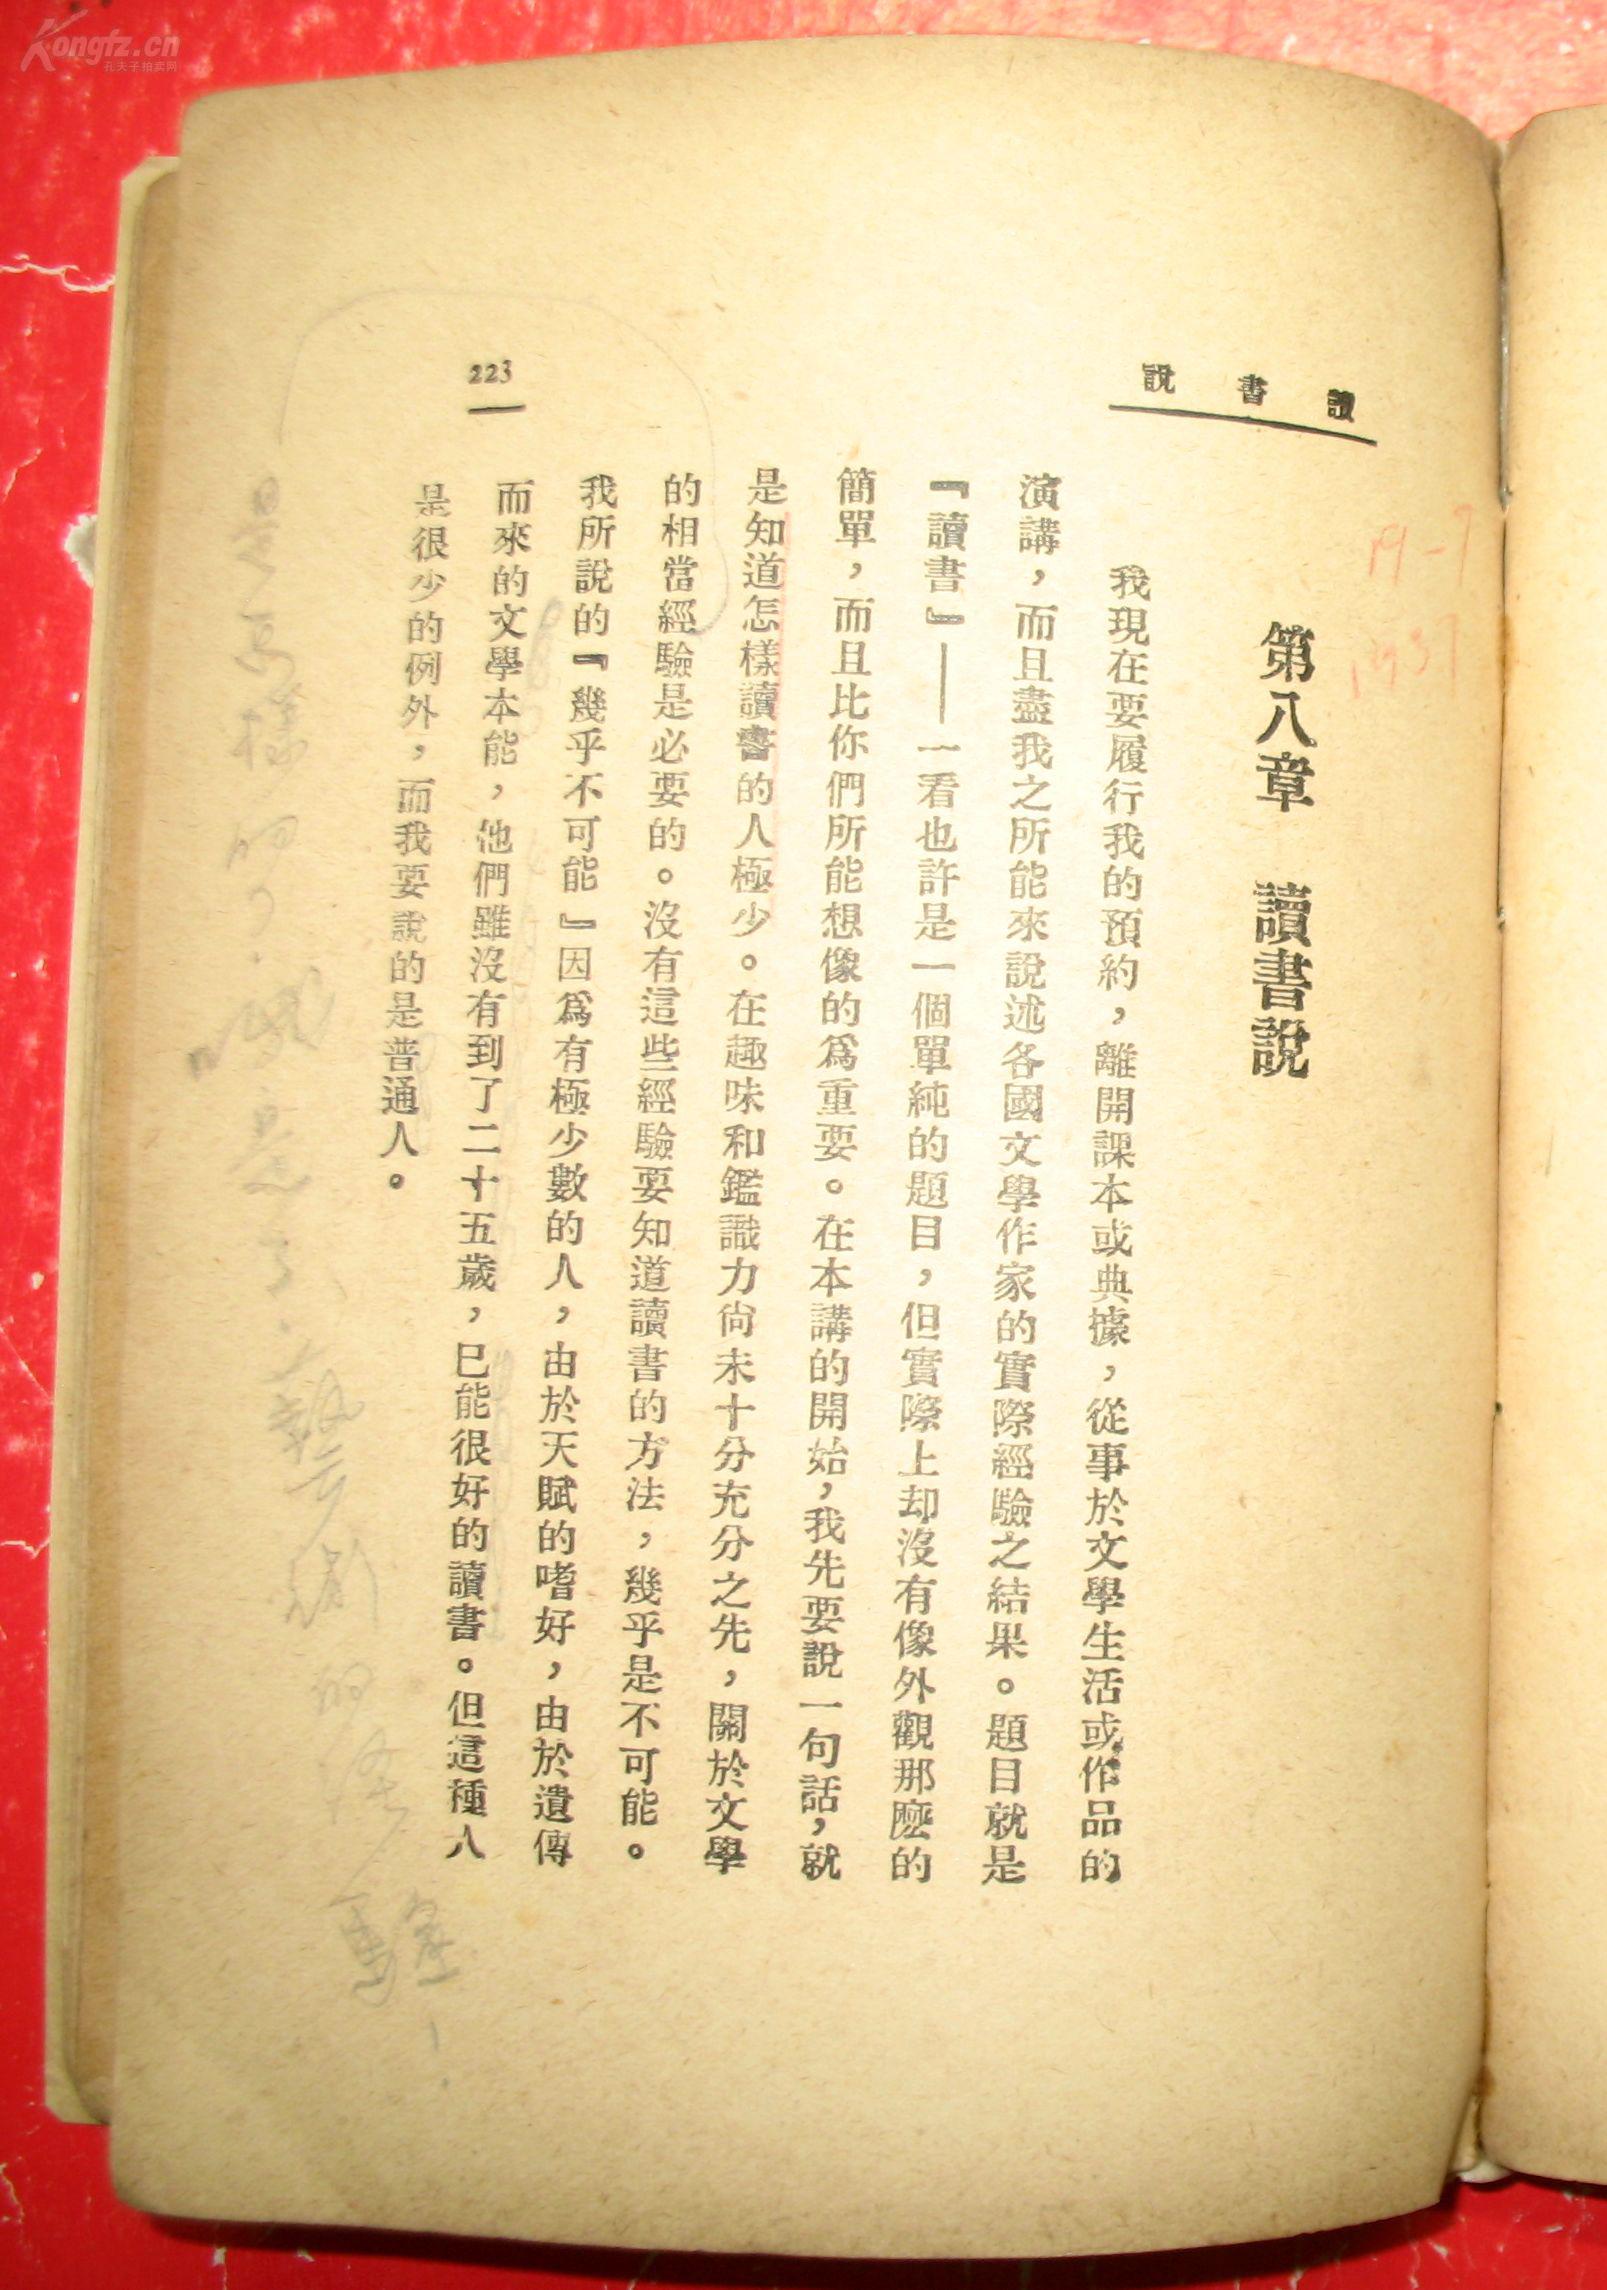 Kongfz.cn
孔夫子拍卖网
讀書說
223
19-7
1937
第八章 讀書說
我現在要履行我的預約，離開課本或典據，從事於文學生活或作品的
演講，而且盡我之所能來說述各國文學作家的實際經驗之結果。題目就是
『讀書』——一看也許是一個單純的題目，但實際上却沒有像外觀那麼的
簡單，而且比你們所能想像的爲重要。在本講的開始，我先要說一句話，就
是知道怎樣讀書的人極少。在趣味和鑑識力尙未十分充分之先，關於文學
的相當經驗是必要的。沒有這些經驗要知道讀書的方法，幾乎是不可能。
我所說的『幾乎不可能』因爲有極少數的人，由於天賦的嗜好，由於遺傳
而來的文學本能，他們雖沒有到了二十五歲，已能很好的讀書。但這種人
是很少的例外，而我要說的是普通人。
是
樣的
藝術的